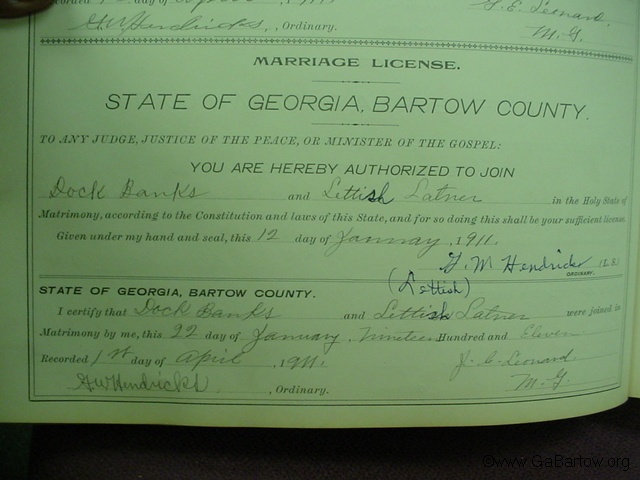 day of 1911
G W Hendricks, Ordinary.
M. G.
MARRIAGE LICENSE.
STATE OF GEORGIA, BARTOW COUNTY.
TO ANY JUDGE, JUSTICE OF THE PEACE, OR MINISTER OF THE GOSPEL:
YOU ARE HEREBY AUTHORIZED TO JOIN
Dock Banks and Lettish Latner in the Holy State of
Matrimony, according to the Constitution and laws of this State, and for so doing this shall be your sufficient license.
Given under my hand and seal, this 12 day of January, 1911.
G. W Hendricks (L.S.)
ORDINARY.
(Lettish)
STATE OF GEORGIA, BARTOW COUNTY.
I certify that Dock Banks and Lettish Latner were joined in
Matrimony by me, this 22 day of January, Nineteen Hundred and Eleven
Recorded 1st day of April, 1911. J. E. Leonard
G W Hendricks, Ordinary. M. G.
©www.GaBartow.org